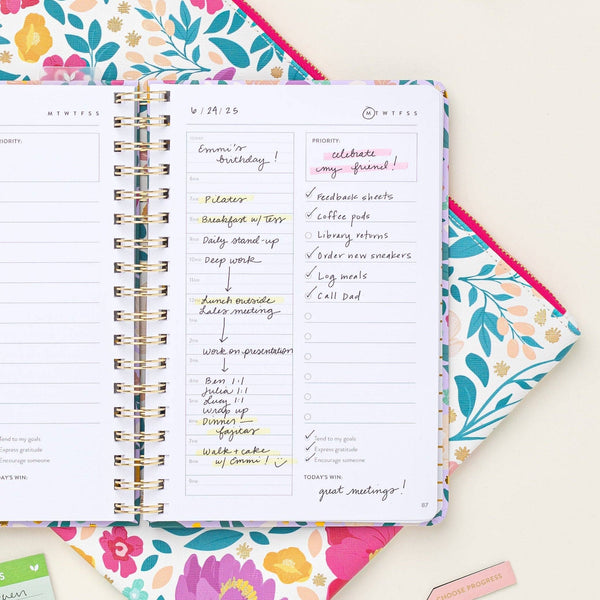 M T W T F S S
RIORITY:
6/24/25
M T W T F S S
TODAY
Emmi's
birthday!
6AM
7AM Pilates
8AM Breakfast w/ Tess
9AM Daily stand-up
10AM Deep work
12PM Lunch outside
Sales meeting
1PM
2PM
3PM Work on presentation
4PM
Ben 1:1
5PM Julia 1:1
Lucy 1:1
Wrap up
6PM Dinner—
fajitas
7PM
Walk + cake
8PM w/ Emmi!
9PM
PRIORITY:
celebrate
my friend!
Feedback sheets
Coffee pods
Library returns
Order new sneakers
Log meals
Call Dad
Tend to my goals
Express gratitude
Encourage someone
TODAY'S WIN:
great meetings!
87
Tend to my goals
Express gratitude
Encourage someone
ODAY'S WIN:
CHOOSE PROGRESS